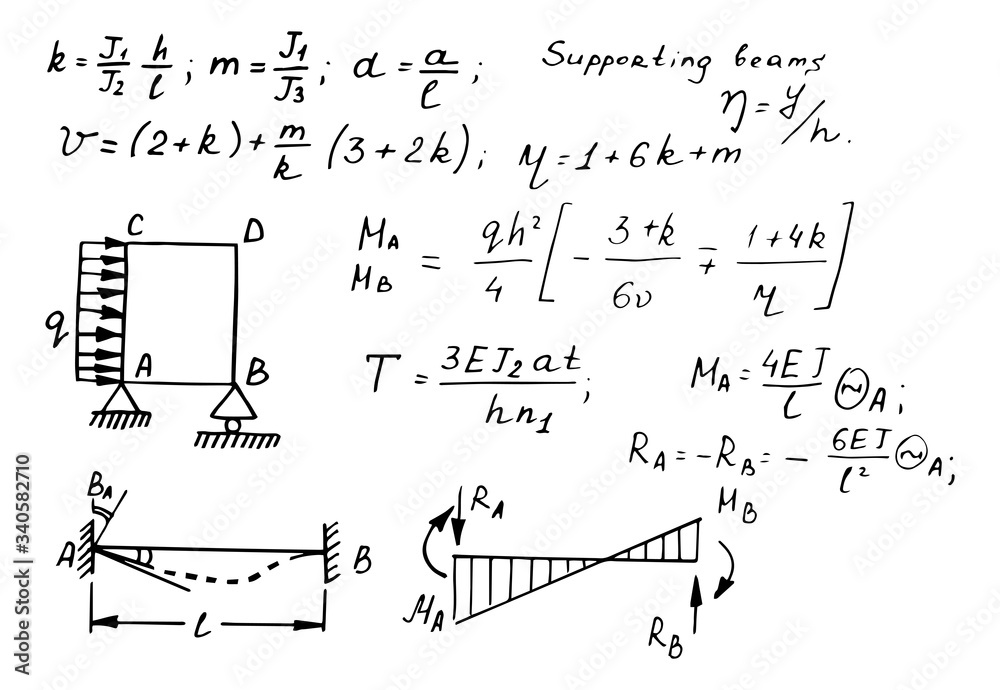 k = J₁/J₂ h/l ; m = J₁/J₃ ; d = a/l ;
Supporting beams
η = y/h.
v = (2+k) + m/k (3+2k) ; η = 1+6k+m
C D
q
A B
M_A M_B = qh²/4 [ - 3+k/6v ∓ 1+4k/η ]
T = 3EJ₂at/hn₁ ;
M_A = 4EJ/l Θ_A ;
R_A = -R_B = - 6EJ/l² Θ_A ;
B_A
A B
l
R_A M_B
M_A
R_B
Adobe Stock | #340582710